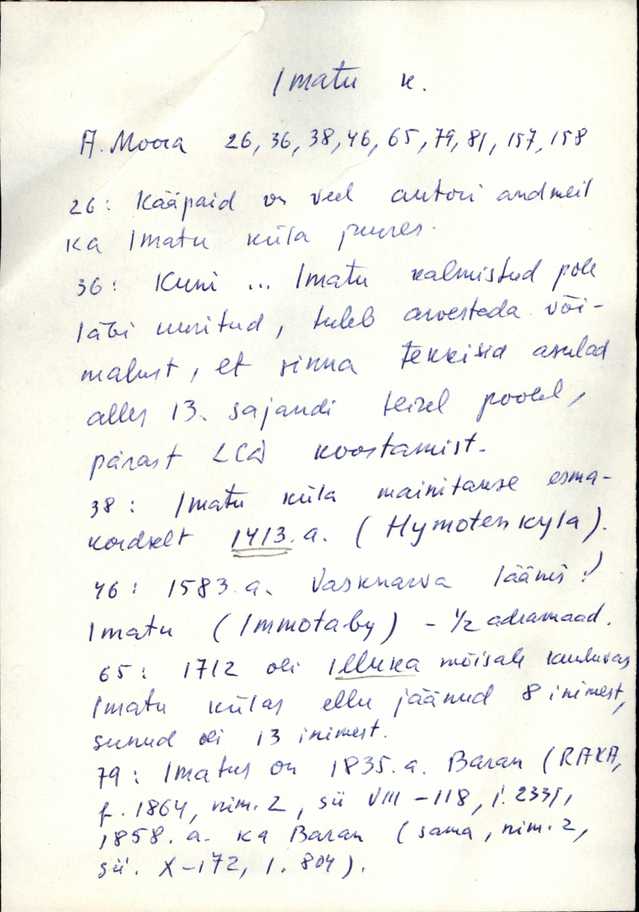 Imatu k.
A. Moora 26, 36, 38, 46, 65, 79, 81, 157, 158
26: Kääpaid on veel autori andmeil
ka Imatu küla juures.
36: Kuni ... Imatu kalmistud pole
läbi uuritud, tuleb arvestada või-
malust, et sinna tekkisid asulad
alles 13. sajandi teisel poolel,
pärast LCD koostamist.
38: Imatu küla mainitakse esma-
kordselt 1413. a. (Hymotenkyla).
46: 1583. a. Vasknarva läänis:
Imatu (Immotaby) - 1/2 adramaad.
65: 1712 oli Illuka mõisale kuuluvas
Imatu külas ellu jäänud 8 inimest,
surnud oli 13 inimest.
79: Imatus on 1835. a. Baran (RAKA,
f. 1864, nim. 2, sü VIII-118, l. 233),
1858. a. ka Baran (sama, nim. 2,
sü. X-172, l. 804).